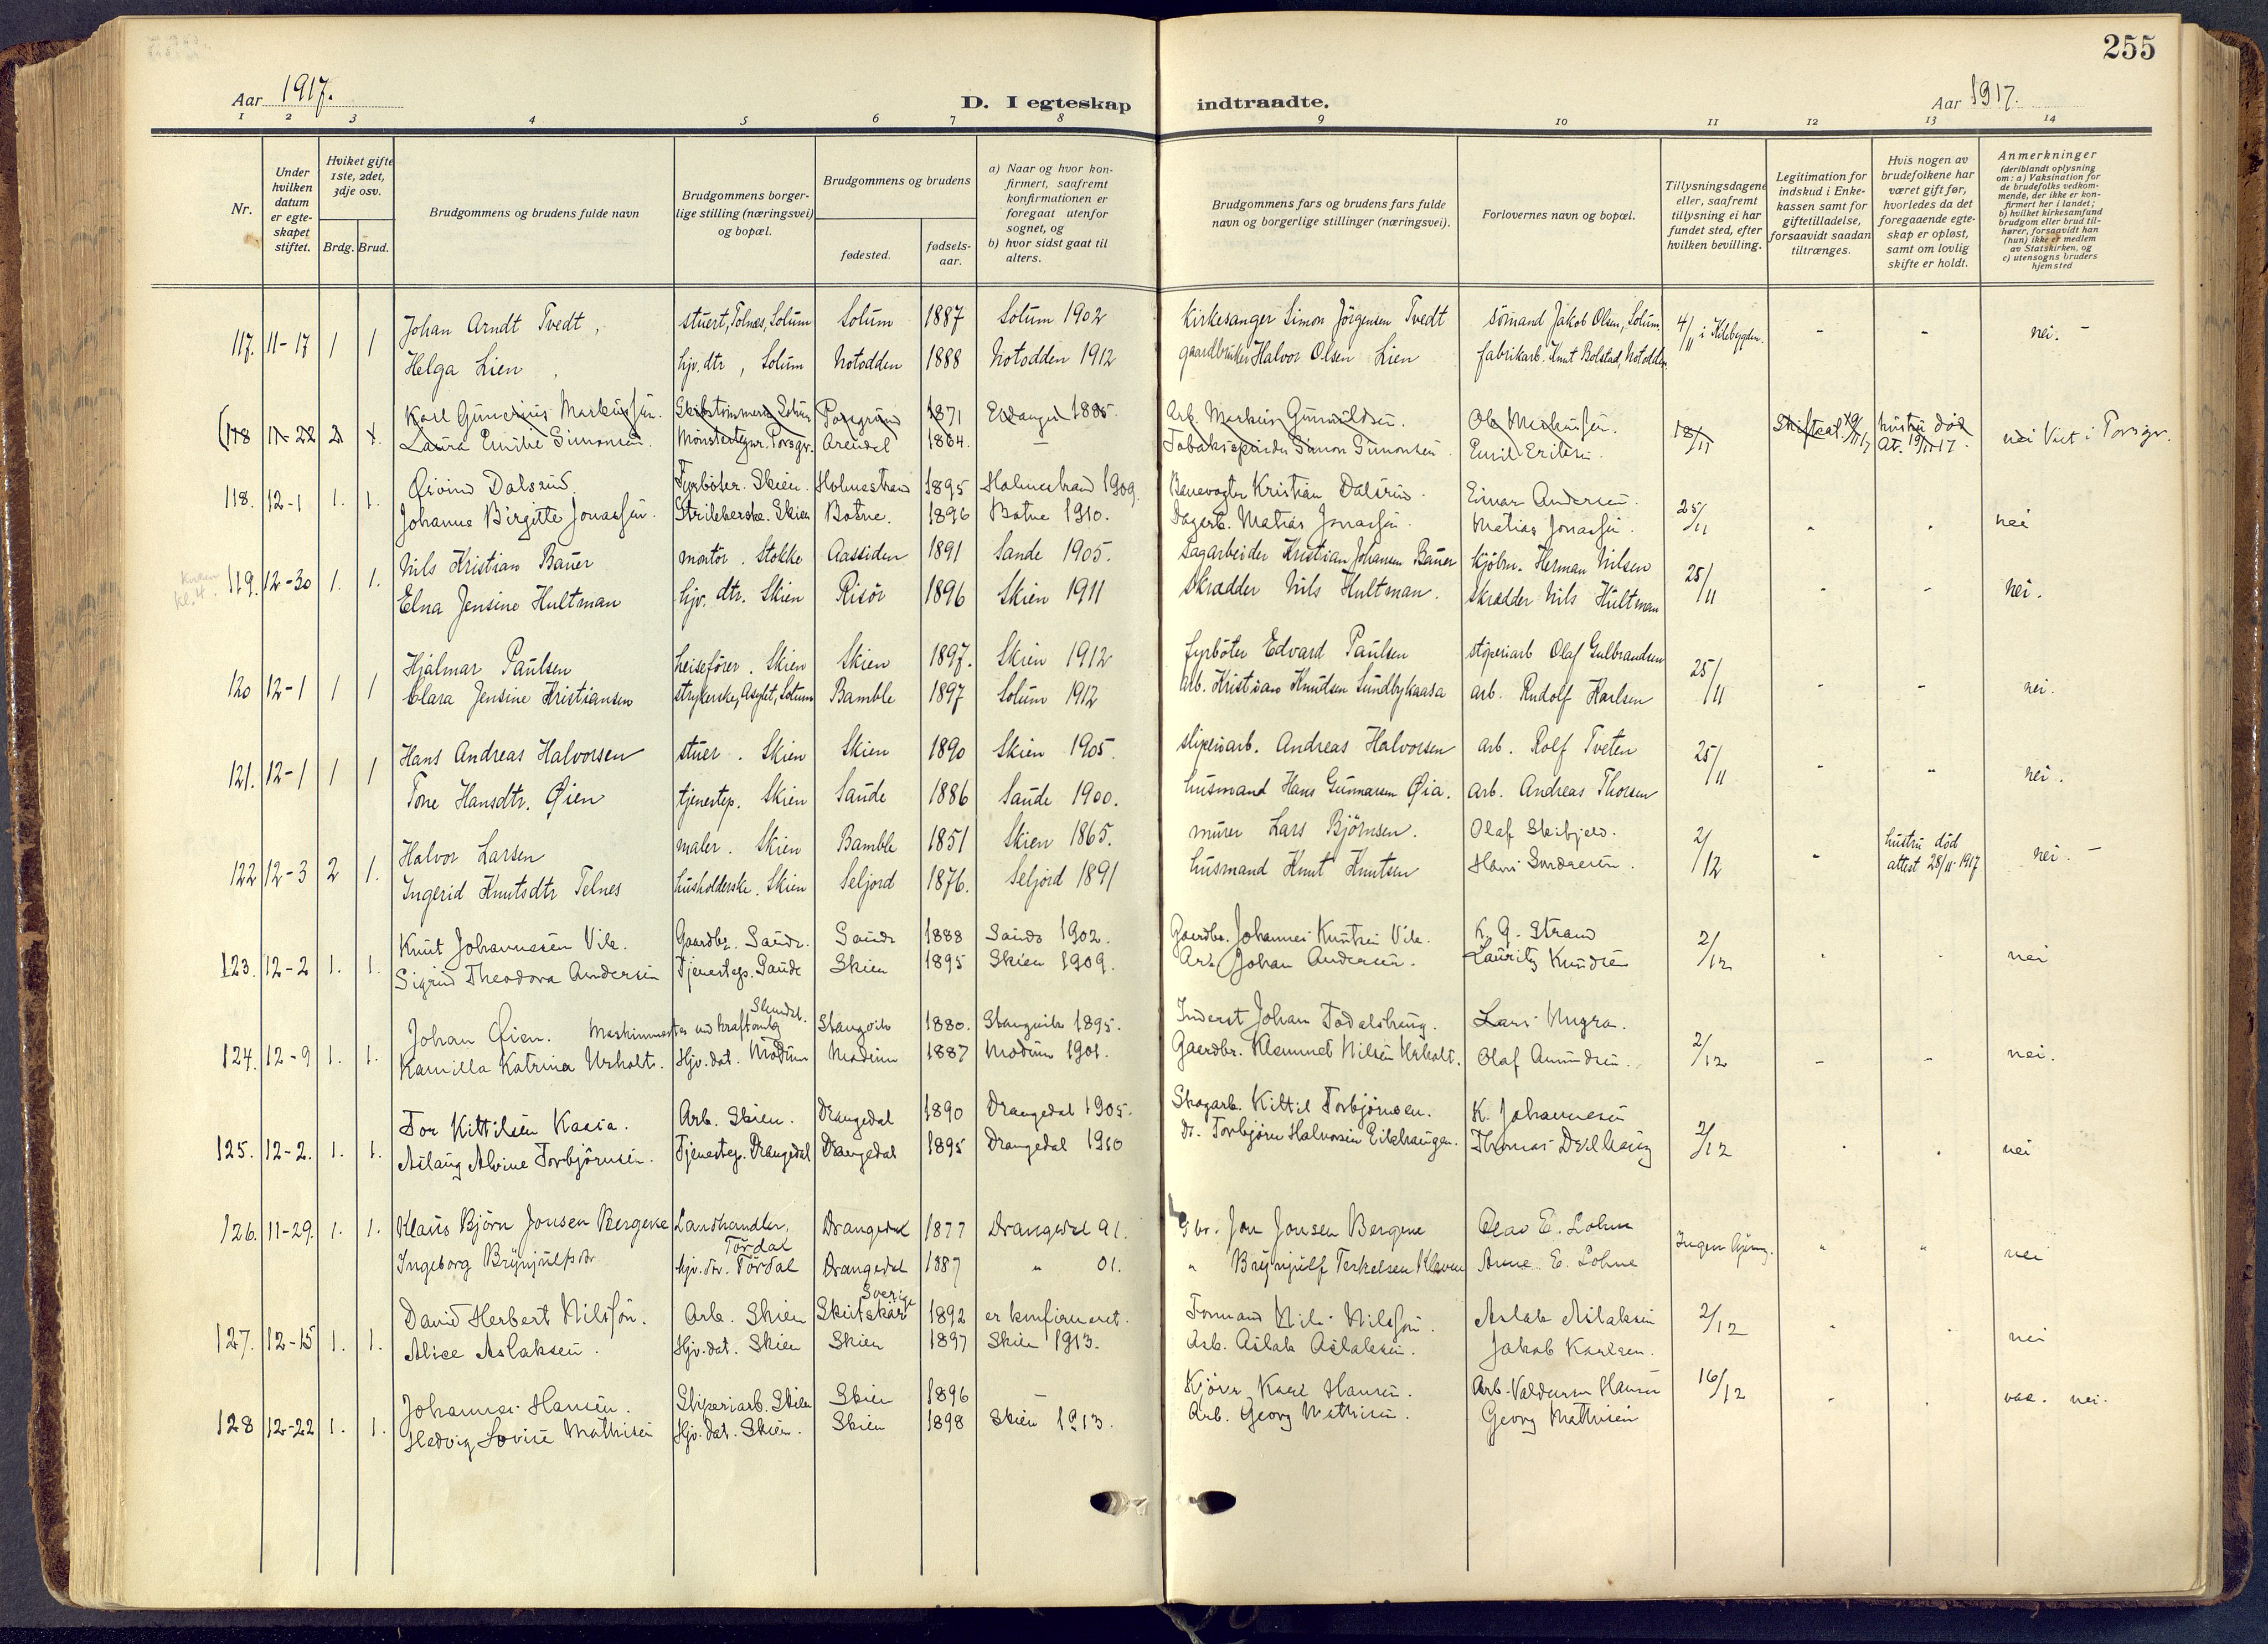 255
Aar 1917.
D. I egteskap indtraadte.
Aar 1917.
1 2 3 4 5 6 7 8 9 10 11 12 13 14
Nr.
Under hvilken datum er egte-skapet stiftet.
Hviket gifte 1ste, 2det, 3dje osv.
Brdg. Brud.
Brudgommens og brudens fulde navn
Brudgommens borger-lige stilling (næringsvei) og bopæl.
Brudgommens og brudens
fødested.
fødsels-aar.
a) Naar og hvor kon-firmert, saafremt konfirmationen er foregaat utenfor sognet, og
b) hvor sidst gaat til alters.
Brudgommens fars og brudens fars fulde navn og borgerlige stillinger (næringsvei).
Forlovernes navn og bopæl.
Tillysningsdagene eller, saafremt tillysning ei har fundet sted, efter hvilken bevilling.
Legitimation for indskud i Enke-kassen samt for giftetilladelse, forsaavidt saadan tiltrænges.
Hvis nogen av brudefolkene har været gift før, hvorledes da det foregaaende egte-skap er opløst, samt om lovlig skifte er holdt.
Anmerkninger (deriblandt oplysning om: a) Vaksination for de brudefolks vedkom-mende, der ikke er kon-firmert her i landet; b) hvilket kirkesamfund brudgom eller brud til-hører, forsaavidt han (hun) ikke er medlem av Statskirken, og c) utensogns bruders hjemsted
117. 11-17 1 1 Johan Arndt Tvedt, stuert, Tolnæs, Solum Solum 1887 Solum 1902 Kirkesanger Simon Jörgensen Tvedt sömand Jakob Olsen, Solum, 4/11 i Kilebygden. - - nei. -
Helga Lien, hjv. dtr, Solum Notodden 1888 Notodden 1912 gaardbruker Halvor Olsen Lien fabrikarb. Knut Bolstad, Notodden
(118 11-22 2 1. Karl Gunerius Markussen. Skibstömmerm. Solum Porsgrund 1871 Eidanger 1885. Arb. Markus Gunnildsen. Ole Markussen. 18/11 Skifteat. 19/11 17 hustru död At. 19/11 17. nei Viet i Porsgr.
Laura Emilie Simonsen. Mönstertegner. Porsgr. Arendal 1864. - Tobakspinder Simon Simonsen. Emil Eriksen.
118. 12-1 1. 1. Öivind Dalsrud. Fyrböter. Skien. Holmestrand 1895 Holmestrand 1909. Banevogter Kristian Dalsrud. Einar Andersen. 25/11 nei
Johanne Birgitte Jonassen. Botne. 1896 Botne 1910. Dagarb. Matias Jonassen. Matias Jonassen.
Kirken kl. 4.
119. 12-30 1. 1. Nils Kristian Bauer montör. Stokke Aassiden 1891 Sande 1905. Sagarbeider Kristian Johansen Bauer kjöbm. Herman Nilsen 25/11 - - nei.
Elna Jensine Hultman hjv. dtr. Skien Risör 1896 Skien 1911 Skrædder Nils Hultman. Skrædder Nils Hultman
120 12-1 1 1 Hjalmar Paulsen heisefører. Skien Skien 1897. Skien 1912 fyrböter Edvard Paulsen støperiarb Olaf Gulbrandsen 25/11 - - nei.
Clara Jensine Kristiansen strykerske, Asylet, Solum Bamble 1897 Solum 1912 Arb. Kristian Knudsen Sundbykaasa arb. Rudolf Karlsen
121. 12-1 1 1 Hans Andreas Halvorsen stuer. Skien Skien 1890 Skien 1905. sliperiarb. Andreas Halvorsen arb. Rolf Tveten 25/11 - - nei.
Tone Hansdtr. Øien tjenestep. Skien Saude 1886 Saude 1900. husmand Hans Gunnarsen Øia. arb. Andreas Thorsen
122 12-3 2 1. Halvor Larsen maler. Skien Bamble 1851 Skien 1865. murer Lars Björnsen. Olaf Skibfjeld. 2/12 - hustru død attest 28/11 1917 nei. -
Ingerid Knutsdtr Telnes husholderske. Skien Seljord 1876. Seljord 1891 husmand Knut Knutsen
123. 12-2 1. 1. Knut Johannesen Vile. Gaardbr. Saude. Saude 1888 Saude 1902. Gaardbr. Johannes Knutsen Vile. K. G. Strand 2/12 nei
Sigrid Theodora Andersen Tjenestep. Saude Skien 1895 Skien 1909. Arb. Johan Andersen. Lauritz Knudsen
124. 12-9 1. 1. Johan Øien. Maskinmester ved kraftanlæg Stangvik 1880. Stangvik 1895. Inderst Johan Todalshaug. Lars Mugra. 2/12 - - nei.
Kamilla Katrina Urholt. Hjv. dat. Modum Modum 1887 Modum 1901. Gaardbr. Klemmet Nilsen Urholt. Olaf Amundsen.
125. 12-2. 1. 1. Tor Kittilsen Kaasa. Arb. Skien. Drangedal 1890 Drangedal 1905. Skogarb. Kittil Torbjörnsen. K. Johannesen 2/12 nei
Aslaug Alvine Torbjörnsen. Tjenestep. Drangedal Drangedal 1895 Drangedal 1910 do. Torbjörn Halvorsen Eikhaugen. Thomas
126. 11-29. 1. 1. Klaus Björn Jonsen Bergene Landhandler, Tördal Drangedal 1877 Drangedal 91. Gbr. Jon Jonsen Bergene Olav E. Lohne Ingen lysning. " " nei
Ingeborg Brynjulfsdtr hjv. dtr. Tördal Drangedal 1887 " 01. " Brynjulf Terkelsen Kleven Anne E. Lohne
127. 12-15 1. 1. David Herbert Nilsson. Arb. Skien Skutskär Sverige 1892 er konfirmeret. Formand Nils Nilsson. Aslak Aslaksen 2/12 nei
Alice Aslaksen. Hjv. dat. Skien Skien 1897 Skien 1913. Arb. Aslak Aslaksen. Jakob Karlsen.
128 12-22 1. 1. Johannes Hansen. Sliperiarb. Skien Skien 1896 - Kjörer Karl Hansen. Arb. Valdemar Hansen 16/12 vac. nei.
Hedvig Lovise Mathisen Hjv. dat. Skien. Skien 1898 Skien 1913. Arb. Georg Mathisen. Georg Mathisen